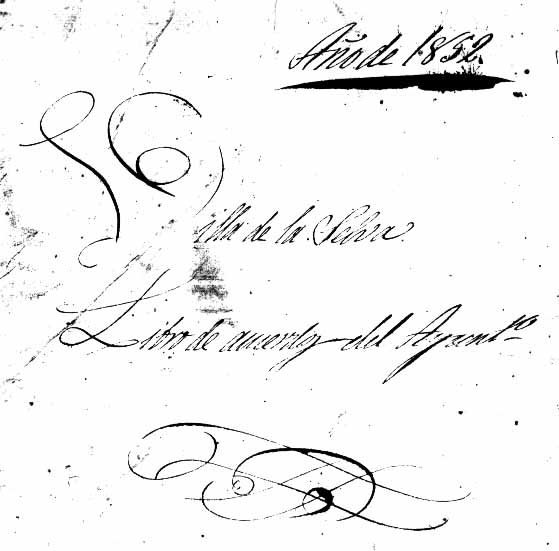 Año de 1852.
Villa de la Selva.
Libro de acuerdos del Ayuntº